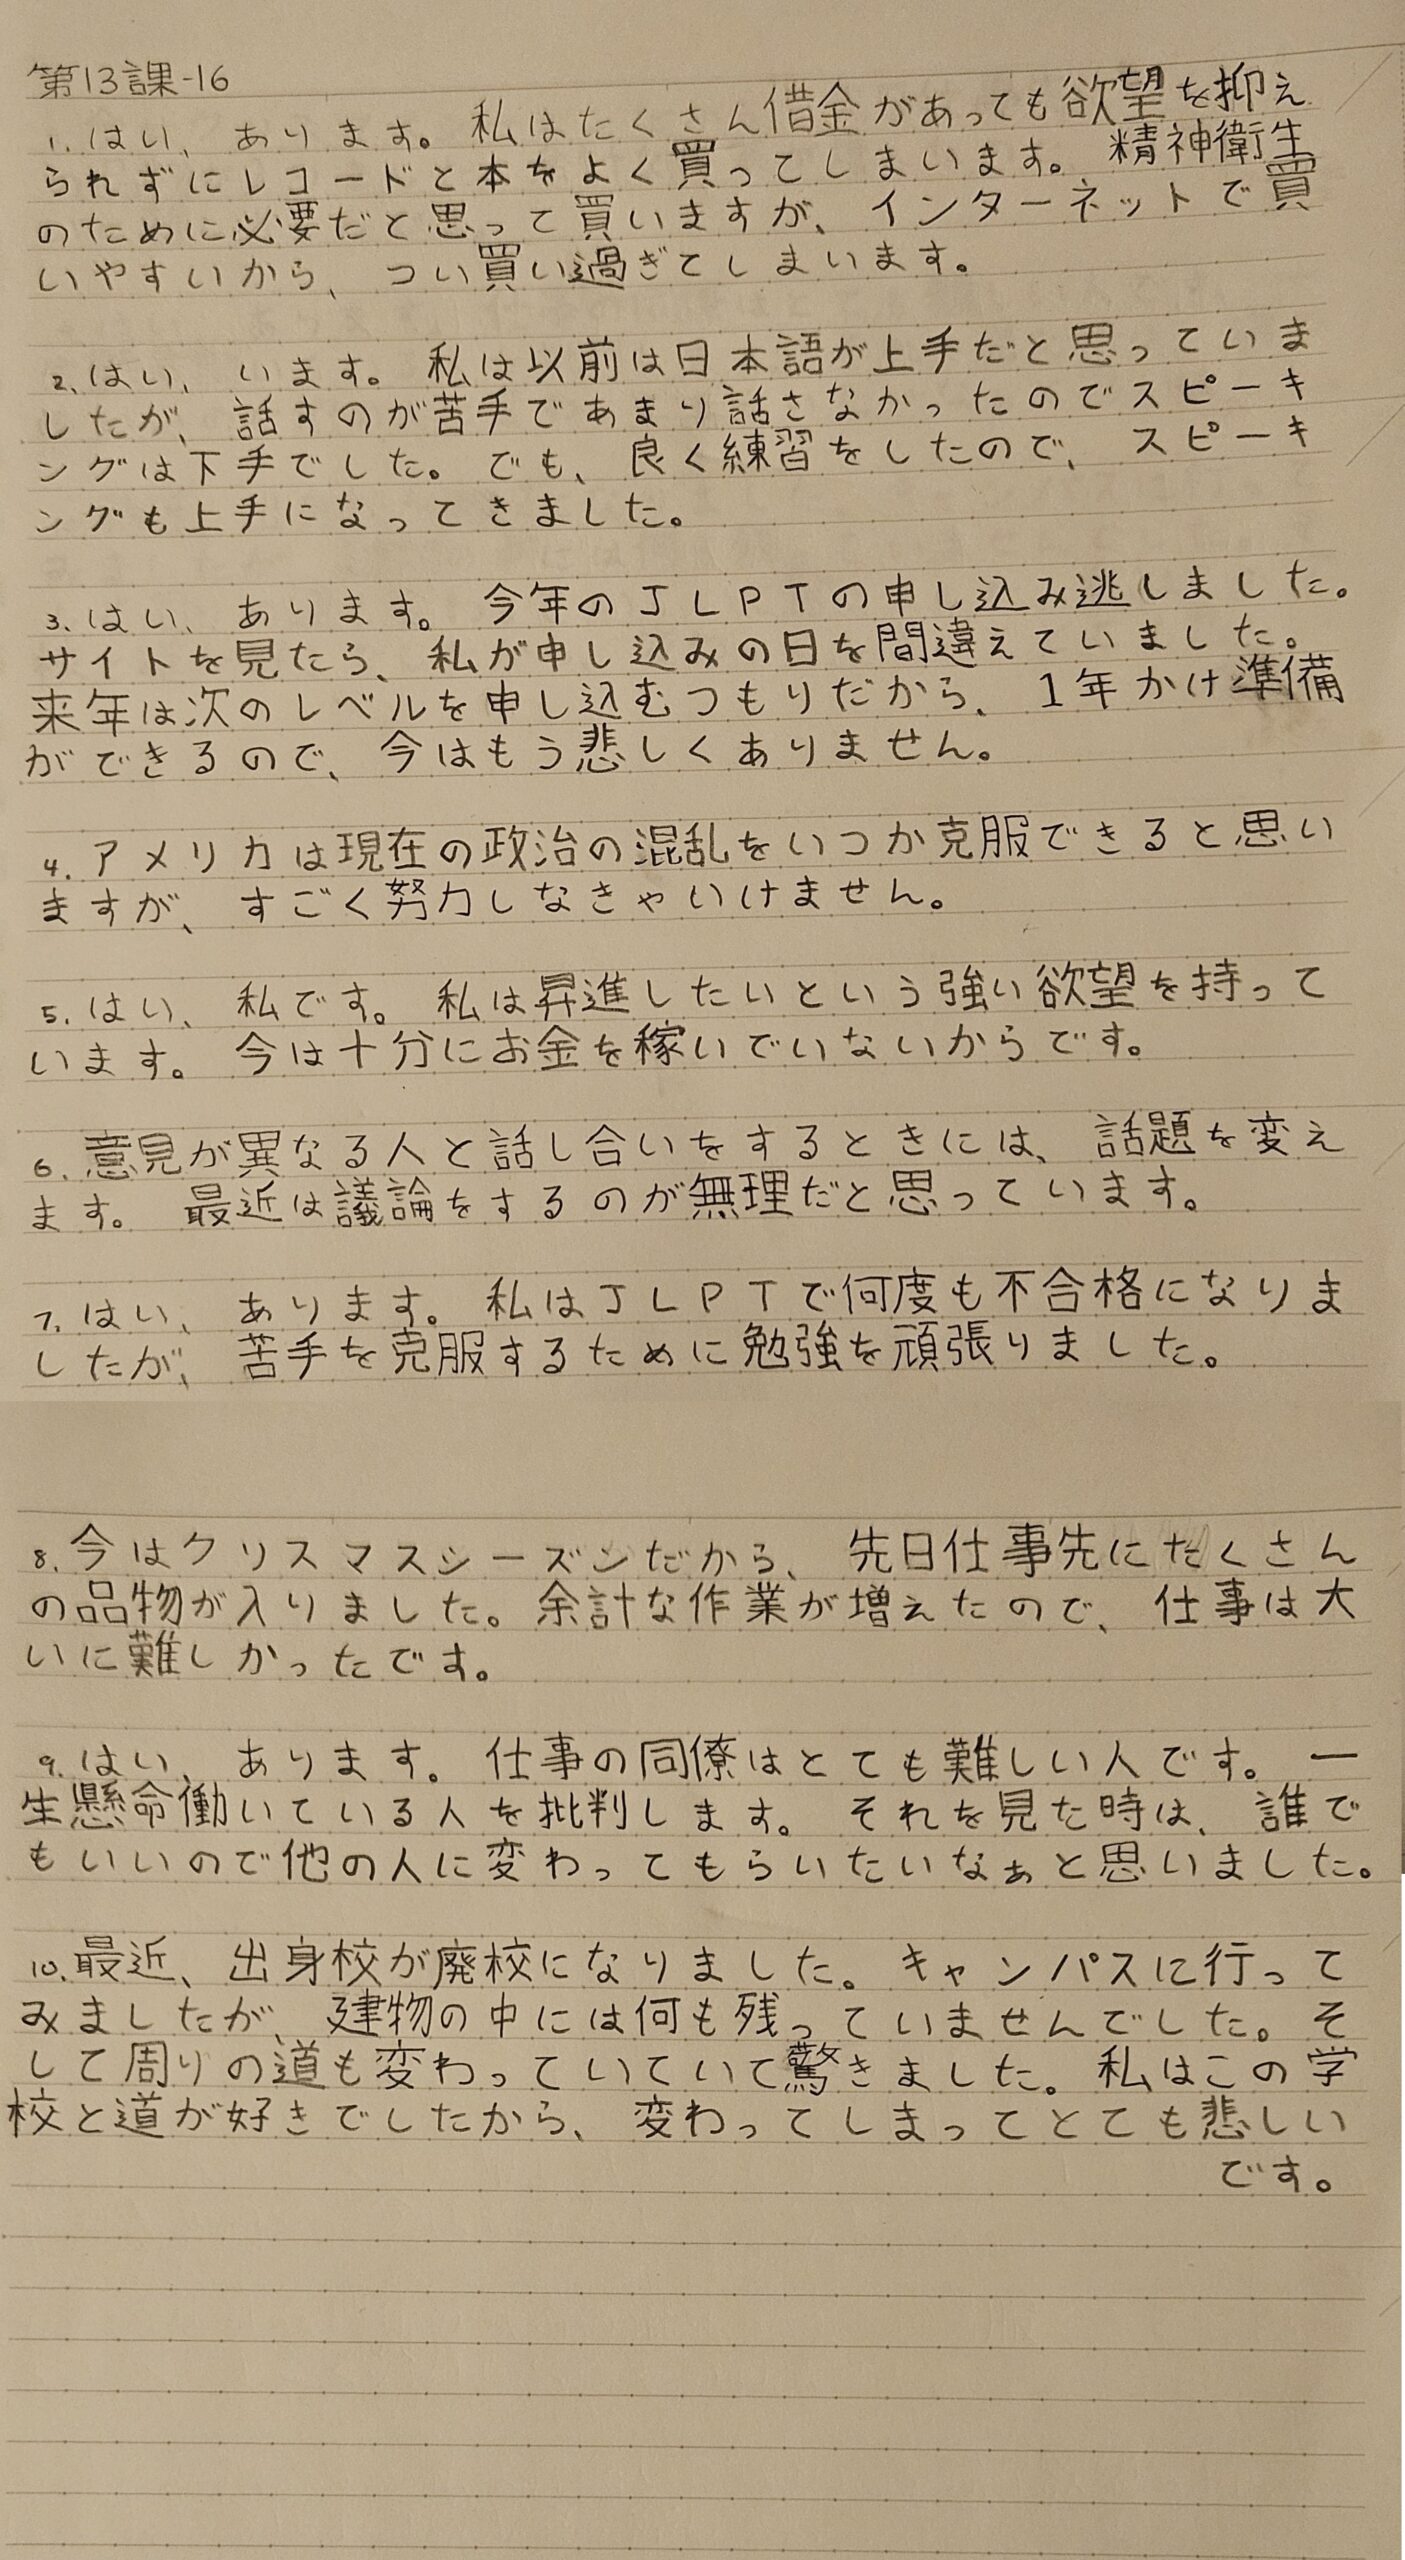 第13課-16
1. はい、あります。私はたくさん借金があっても欲望を抑え
られずにレコードと本をよく買ってしまいます。精神衛生
のために必要だと思って買いますが、インターネットで買
いやすいから、つい買い過ぎてしまいます。
2. はい、います。私は以前は日本語が上手だと思っていま
したが、話すのが苦手であまり話さなかったのでスピーキ
ングは下手でした。でも、良く練習をしたので、スピーキ
ングも上手になってきました。
3. はい、あります。今年のJLPTの申し込み逃しました。
サイトを見たら、私が申し込みの日を間違えていました。
来年は次のレベルを申し込むつもりだから、1年かけ準備
ができるので、今はもう悲しくありません。
4. アメリカは現在の政治の混乱をいつか克服できると思い
ますが、すごく努力しなきゃいけません。
5. はい、私です。私は昇進したいという強い欲望を持って
います。今は十分にお金を稼いでいないからです。
6. 意見が異なる人と話し合いをするときには、話題を変え
ます。最近は議論をするのが無理だと思っています。
7. はい、あります。私はJLPTで何度も不合格になりま
したが、苦手を克服するために勉強を頑張りました。
8. 今はクリスマスシーズンだから、先日仕事先にたくさん
の品物が入りました。余計な作業が増えたので、仕事は大
いに難しかったです。
9. はい、あります。仕事の同僚はとても難しい人です。一
生懸命働いている人を批判します。それを見た時は、誰で
もいいので他の人に変わってもらいたいなぁと思いました。
10. 最近、出身校が廃校になりました。キャンパスに行って
みましたが、建物の中には何も残っていませんでした。そ
して周りの道も変わっていていて驚きました。私はこの学
校と道が好きでしたから、変わってしまってとても悲しい
です。